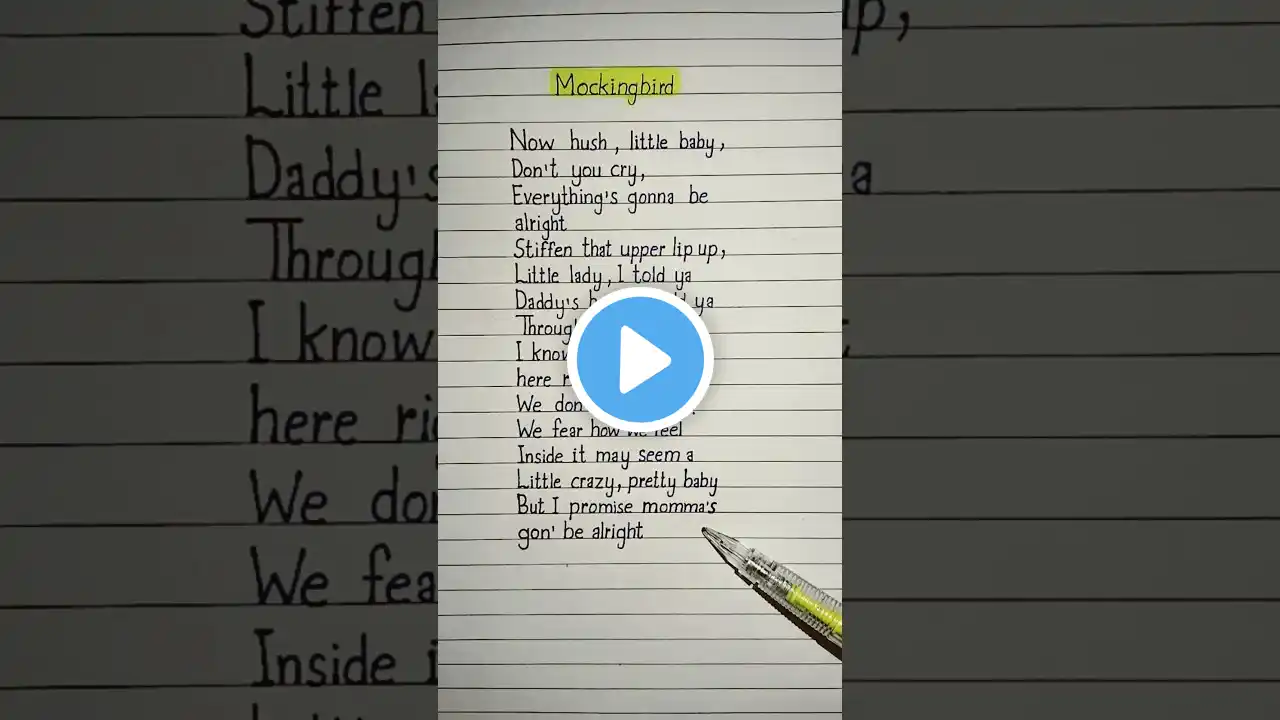 Mockingbird
Now hush, little baby,
Don't you cry,
Everything's gonna be
alright
Stiffen that upper lip up,
Little lady, I told ya
Daddy's ya
I
here
We
We fear how we feel
Inside it may seem a
Little crazy, pretty baby
But I promise momma's
gon' be alright